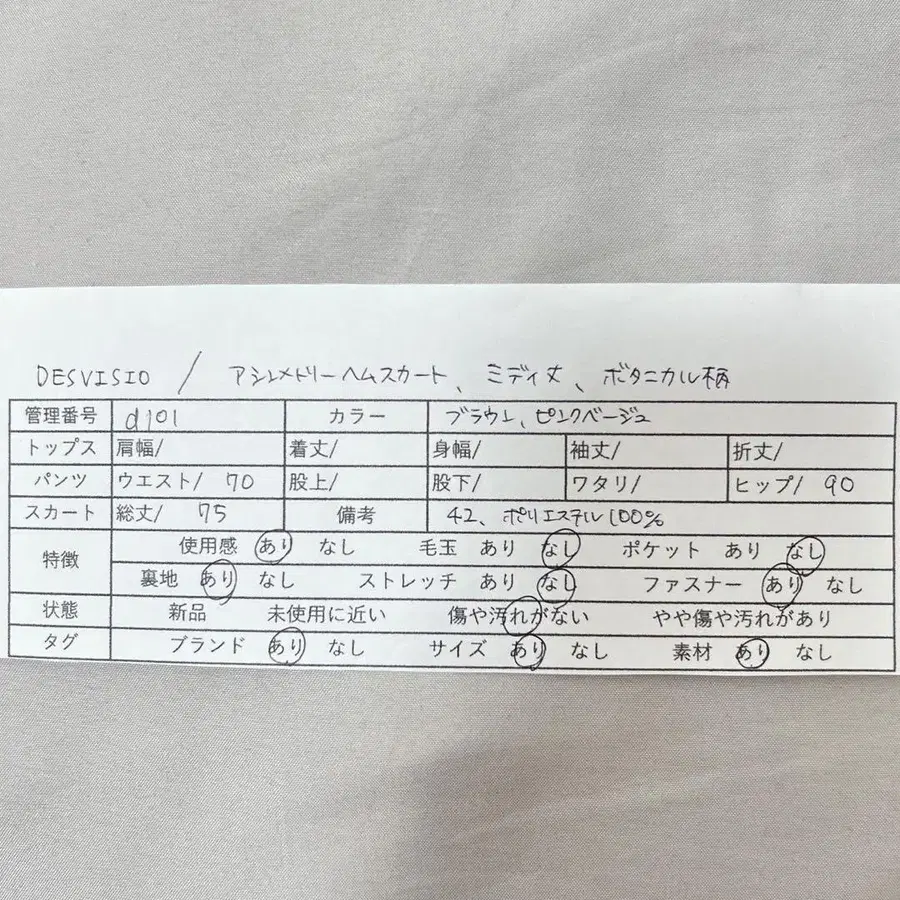 DESVISIO / アシンメトリーヘムスカート、ミディ丈、ボタニカル柄
管理番号 d101 カラー ブラウン、ピンクベージュ
トップス 肩幅/ 着丈/ 身幅/ 袖丈/ 折丈/
パンツ ウエスト/ 70 股上/ 股下/ ワタリ/ ヒップ/ 90
スカート 総丈/ 75 備考 42、ポリエステル100%
特徴 使用感 あり なし 毛玉 あり なし ポケット あり なし
裏地 あり なし ストレッチ あり なし ファスナー あり なし
状態 新品 未使用に近い 傷や汚れがない やや傷や汚れがあり
タグ ブランド あり なし サイズ あり なし 素材 あり なし